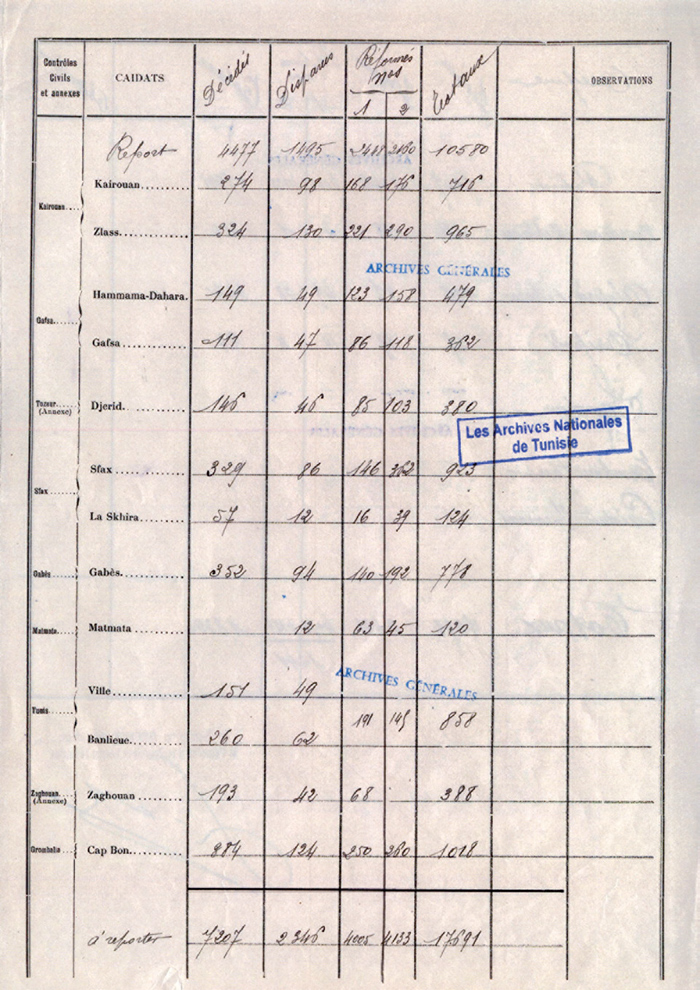 Contrôles Civils et annexes CAIDATS Décédés Disparus Réformés nos 1 2 Totaux OBSERVATIONS
Report 4477 1495 2448 2160 10580
Kairouan.... Kairouan.......... 274 98 168 176 716
Zlass.............. 324 130 221 290 965
ARCHIVES GÉNÉRALES
Gafsa.... Hammama-Dahara. 149 49 123 158 479
Gafsa.............. 111 47 86 118 362
Tozeur (Annexe) Djerid.............. 146 46 85 103 380
Les Archives Nationales
de Tunisie
Sfax.... Sfax................ 329 86 146 362 923
La Skhira.......... 57 12 16 39 124
Gabès.... Gabès.............. 352 94 140 192 778
Matmata.... Matmata 12 63 45 120
ARCHIVES GÉNÉRALES
Tunis.... Ville............... 151 49
191 145 858
Banlieue........... 260 62
Zaghouan (Annexe) Zaghouan......... 193 42 68 388
Grombalia.... Cap Bon........... 384 124 250 260 1018
à reporter 7207 2346 4005 4133 17691